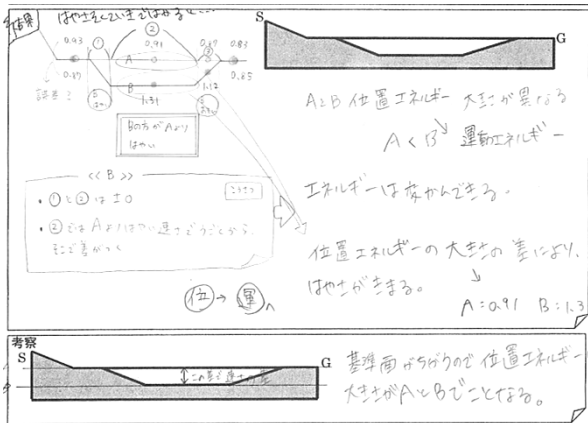 結果
はやさをそくていきではかると…
②
①
0.93
0.91
0.89
0.83
A
0.87
B
1.31
1.12
0.85
誤差?
Bの方がAより
はやい
<<B>>
・①と②は±0
・②ではAよりはやい速さでうごくから、
そこで差がつく
位→運へ
S
G
AとB 位置エネルギー 大きさが異なる
A<B 運動エネルギー
エネルギーは変かんできる。
位置エネルギーの大きさの差により、
はやさがきまる。
A=0.91 B=1.3
考察
S
G
この差で速さの差
基準面がちがうので位置エネルギー
大きさがAとBでことなる。